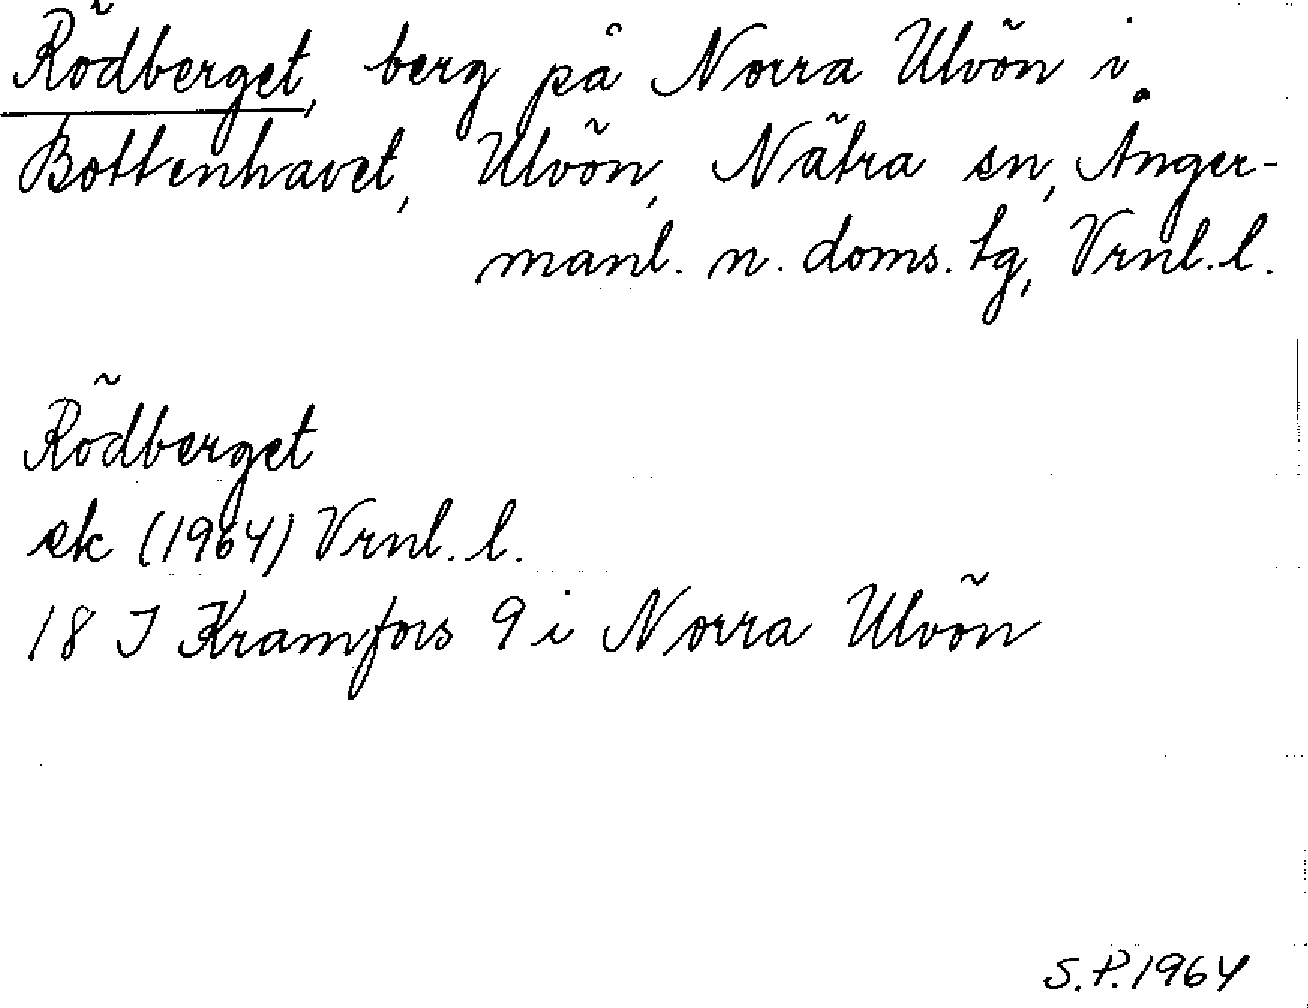 Rödberget, berg på Norra Ulvön i
Bottenhavet, Ulvön, Nätra sn, Ånger-
manl. n. doms. tg, Vrnl. l.
Rödberget
ek (1964) Vrnl. l.
18 I Kramfors 9 i Norra Ulvön
S.P. 1964